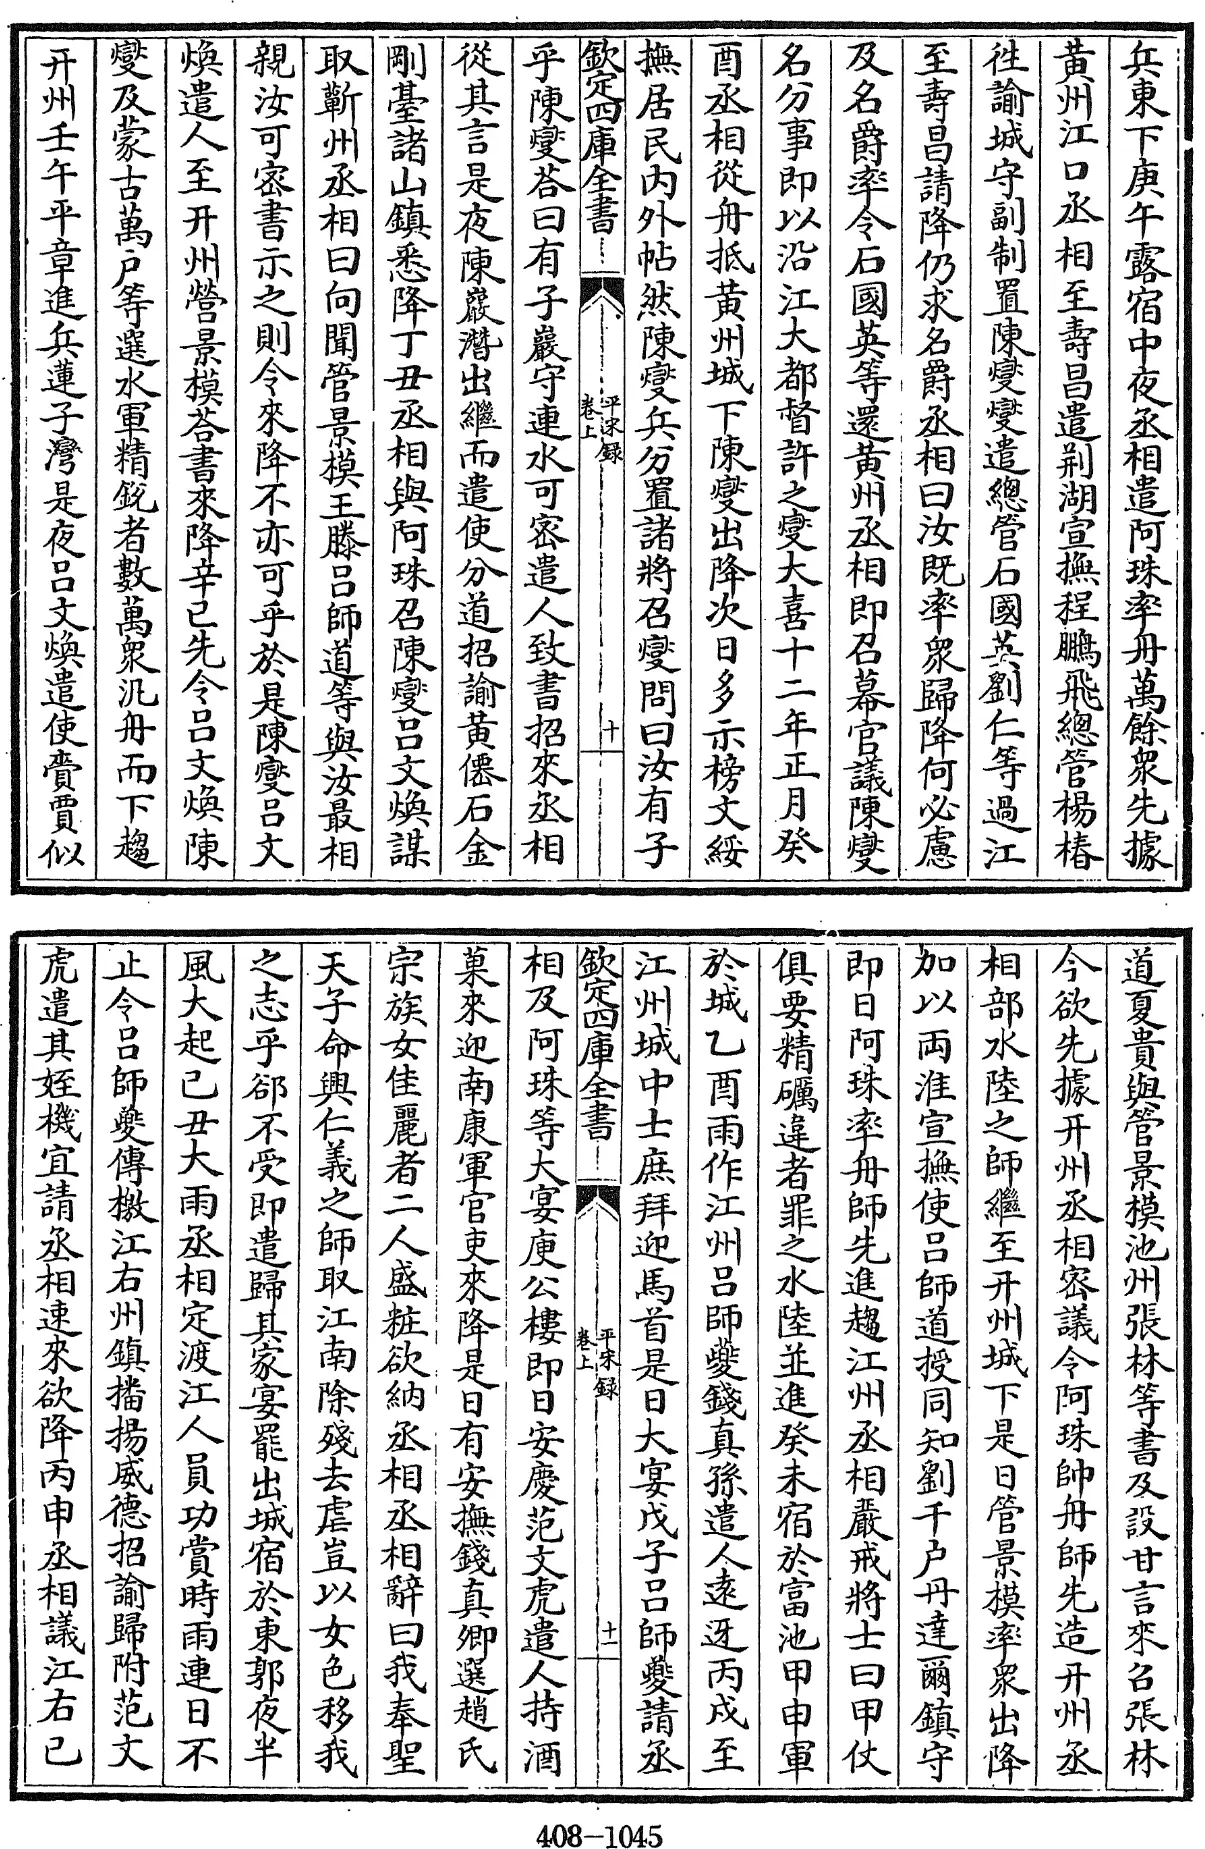 兵東下庚午露宿中夜丞相遣阿珠率舟萬餘衆先據
黄州江口丞相至壽昌遣荆湖宣撫程鵬飛總管楊椿
徃諭城守副制置陳燮燮遣總管石國英劉仁等過江
至壽昌請降仍求名爵丞相曰汝既率衆歸降何必慮
及名爵率令石國英等還黄州丞相即召幕官議陳燮
名分事即以沿江大都督許之燮大喜十二年正月癸
酉丞相從舟抵黄州城下陳燮出降次日多示榜文綏
撫居民内外帖然陳燮兵分置諸將召燮問曰汝有子
欽定四庫全書
平宋録
卷上
十
乎陳燮荅曰有子巖守連水可密遣人致書招來丞相
從其言是夜陳巖潛出繼而遣使分道招諭黄僊石金
剛臺諸山鎮悉降丁丑丞相與阿珠召陳燮吕文煥謀
取蘄州丞相曰向聞管景模王滕吕師道等與汝最相
親汝可密書示之則令來降不亦可乎於是陳燮吕文
煥遣人至开州營景模荅書來降辛已先令吕文煥陳
燮及蒙古萬戶等選水軍精鋭者數萬衆汎舟而下趨
开州壬午平章進兵蓮子灣是夜吕文煥遣使賫賈似
道夏貴與管景模池州張林等書及設甘言來召張林
今欲先據开州丞相密議令阿珠帥舟師先造开州丞
相部水陸之師繼至开州城下是日管景模率衆出降
加以兩淮宣撫使吕師道授同知劉千戶丹達爾鎮守
即日阿珠率舟師先進趨江州丞相嚴戒將士曰甲仗
俱要精礪違者罪之水陸並進癸未宿於富池甲申軍
於城乙酉雨作江州吕師夔錢真孫遣人遠迓丙戌至
江州城中士庶拜迎馬首是日大宴戊子吕師夔請丞
欽定四庫全書
平宋録
卷上
十一
相及阿珠等大宴庾公樓即日安慶范文虎遣人持酒
菓來迎南康軍官吏來降是日有安撫錢真卿選趙氏
宗族女佳麗者二人盛粧欲納丞相丞相辭曰我奉聖
天子命興仁義之師取江南除殘去虐豈以女色移我
之志乎郤不受即遣歸其家宴罷出城宿於東郭夜半
風大起己丑大雨丞相定渡江人員功賞時雨連日不
止令吕師夔傳檄江右州鎮播揚威德招諭歸附范文
虎遣其姪機宜請丞相速來欲降丙申丞相議江右已
408-1045